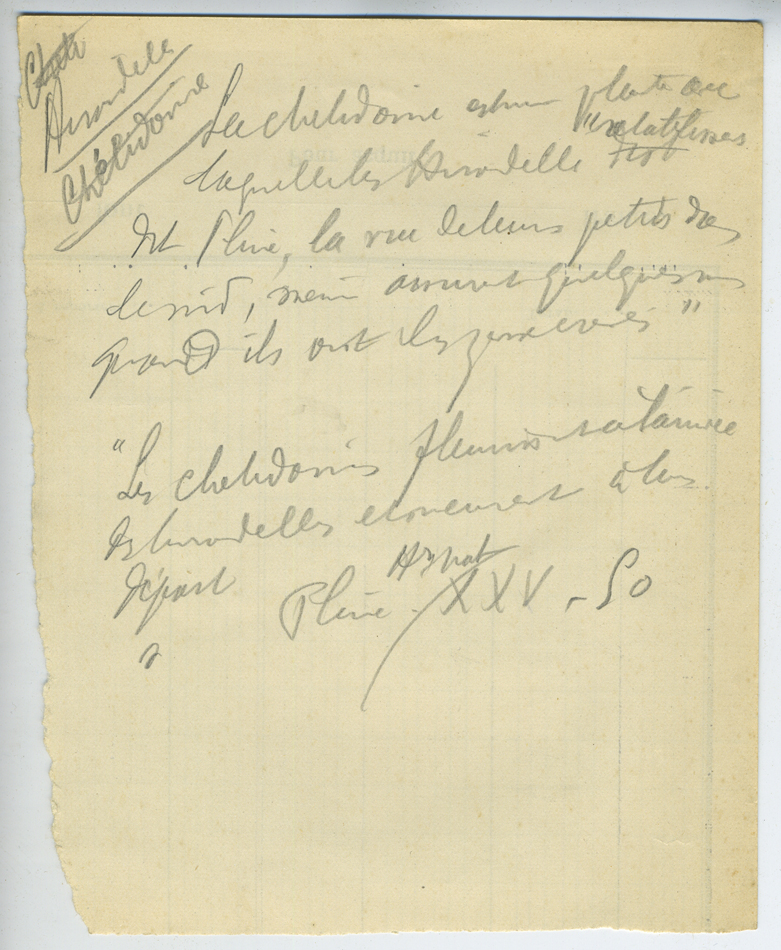 Hirondelle
Chélidoine
La chelidoine est une plante avec
laquelle les Hirondelles "
dit Pline, la vue de leurs petits dans
le nid, même assurent quelques uns
quand ils ont les yeux crevés"
"Les chelidoines fleurissent à l'arrivée
des hirondelles et meurent à leur
départ
Pline. H. nat XXV - 50